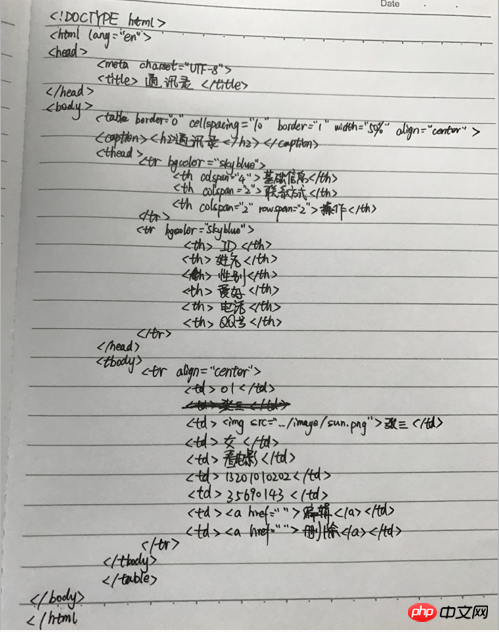 Date
<!DOCTYPE html>
<html lang="en">
<head>
<meta charset="UTF-8">
<title> 通讯录 </title>
</head>
<body>
<table border="0" cellspacing="10" border="1" width="50%" align="center">
<caption><h2>通讯录</h2></caption>
<thead>
<tr bgcolor="skyblue">
<th colspan="4">基础信息</th>
<th colspan="2">联系方式</th>
<th colspan="2" rowspan="2">操作</th>
</tr>
<tr bgcolor="skyblue">
<th> ID </th>
<th> 姓名 </th>
<th> 性别 </th>
<th> 爱好 </th>
<th> 电话 </th>
<th> QQ号 </th>
</tr>
</head>
<tbody>
<tr align="center">
<td> 01 </td>
<td> 张三 </td>
<td> <img src="../image/sun.png"> 张三 </td>
<td> 女 </td>
<td> 看电影 </td>
<td> 13201010202 </td>
<td> 35690143 </td>
<td> <a href=""> 编辑 </a> </td>
<td> <a href=""> 删除 </a> </td>
</tr>
</tbody>
</table>
</body>
</html
php 中文网